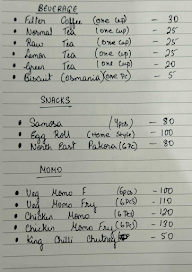 BEVERAGE
• Filter Coffee (one cup) - 30
• Normal Tea (one cup) - 25
• Raw Tea (one cup) - 25
• Lemon Tea (one cup) - 25
• Green Tea (one cup) - 20
• Biscuit (Osmania) (one Pc) - 5
SNACKS
• Samosa (4pcs) - 80
• Egg Roll (Home Style) - 100
• North East Pakora (6 Pc) - 80
MOMO
• Veg Momo (6pcs) - 100
• Veg Momo Fry (6 Pcs) - 110
• Chicken Momo (6 Pcs) - 120
• Chicken Momo Fry (6 Pcs) - 130
• King Chilli Chutney - 50